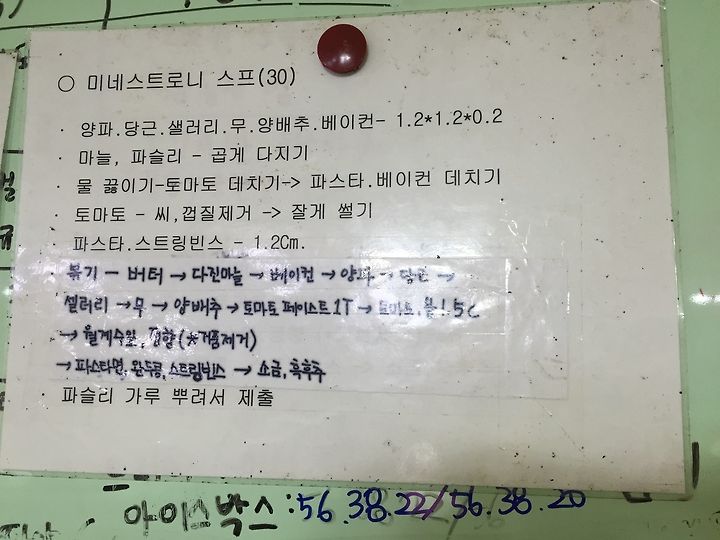 ○ 미네스트로니 스프(30)
· 양파.당근.샐러리.무.양배추.베이컨- 1.2*1.2*0.2
· 마늘, 파슬리 - 곱게 다지기
· 물 끓이기-토마토 데치기-> 파스타.베이컨 데치기
· 토마토 - 씨,껍질제거 -> 잘게 썰기
· 파스타.스트링빈스 - 1.2Cm.
· 볶기 - 버터 → 다진마늘 → 베이컨 → 양파 → 당근 →
샐러리 → 무 → 양배추 → 토마토 페이스트 1T → 토마토.물 1.5c
→ 월계수잎, 정향(*거품제거)
→ 파스타면, 완두콩, 스트링빈스 → 소금, 흑후추
· 파슬리 가루 뿌려서 제출
아이스박스:56.38.22/56.38.20